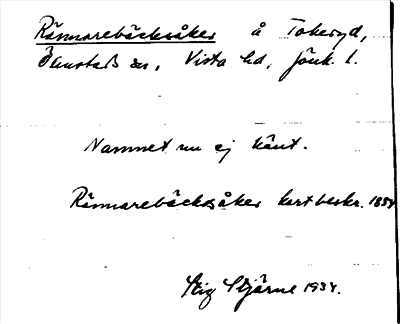 Rännarebäcksåker å Tokeryd,
Ölmstads sn, Vista hd, Jönk. l.
Namnet nu ej känt.
Rännarebäcksåker kartbeskr. 1854
Stig Stjärne 1934.